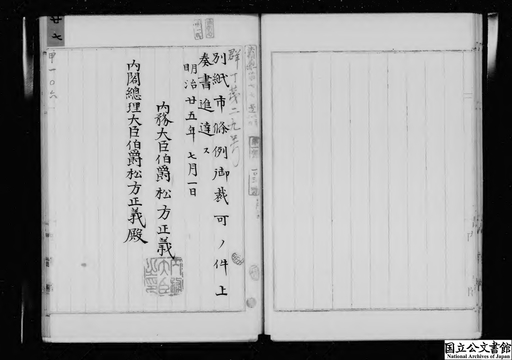 別紙市條例御裁可ノ件上
奏書進達ス
明治廿五年七月一日
内務大臣伯爵松方正義
内閣總理大臣伯爵松方正義殿
廿七
甲一〇六
国立公文書館
National Archives of Japan